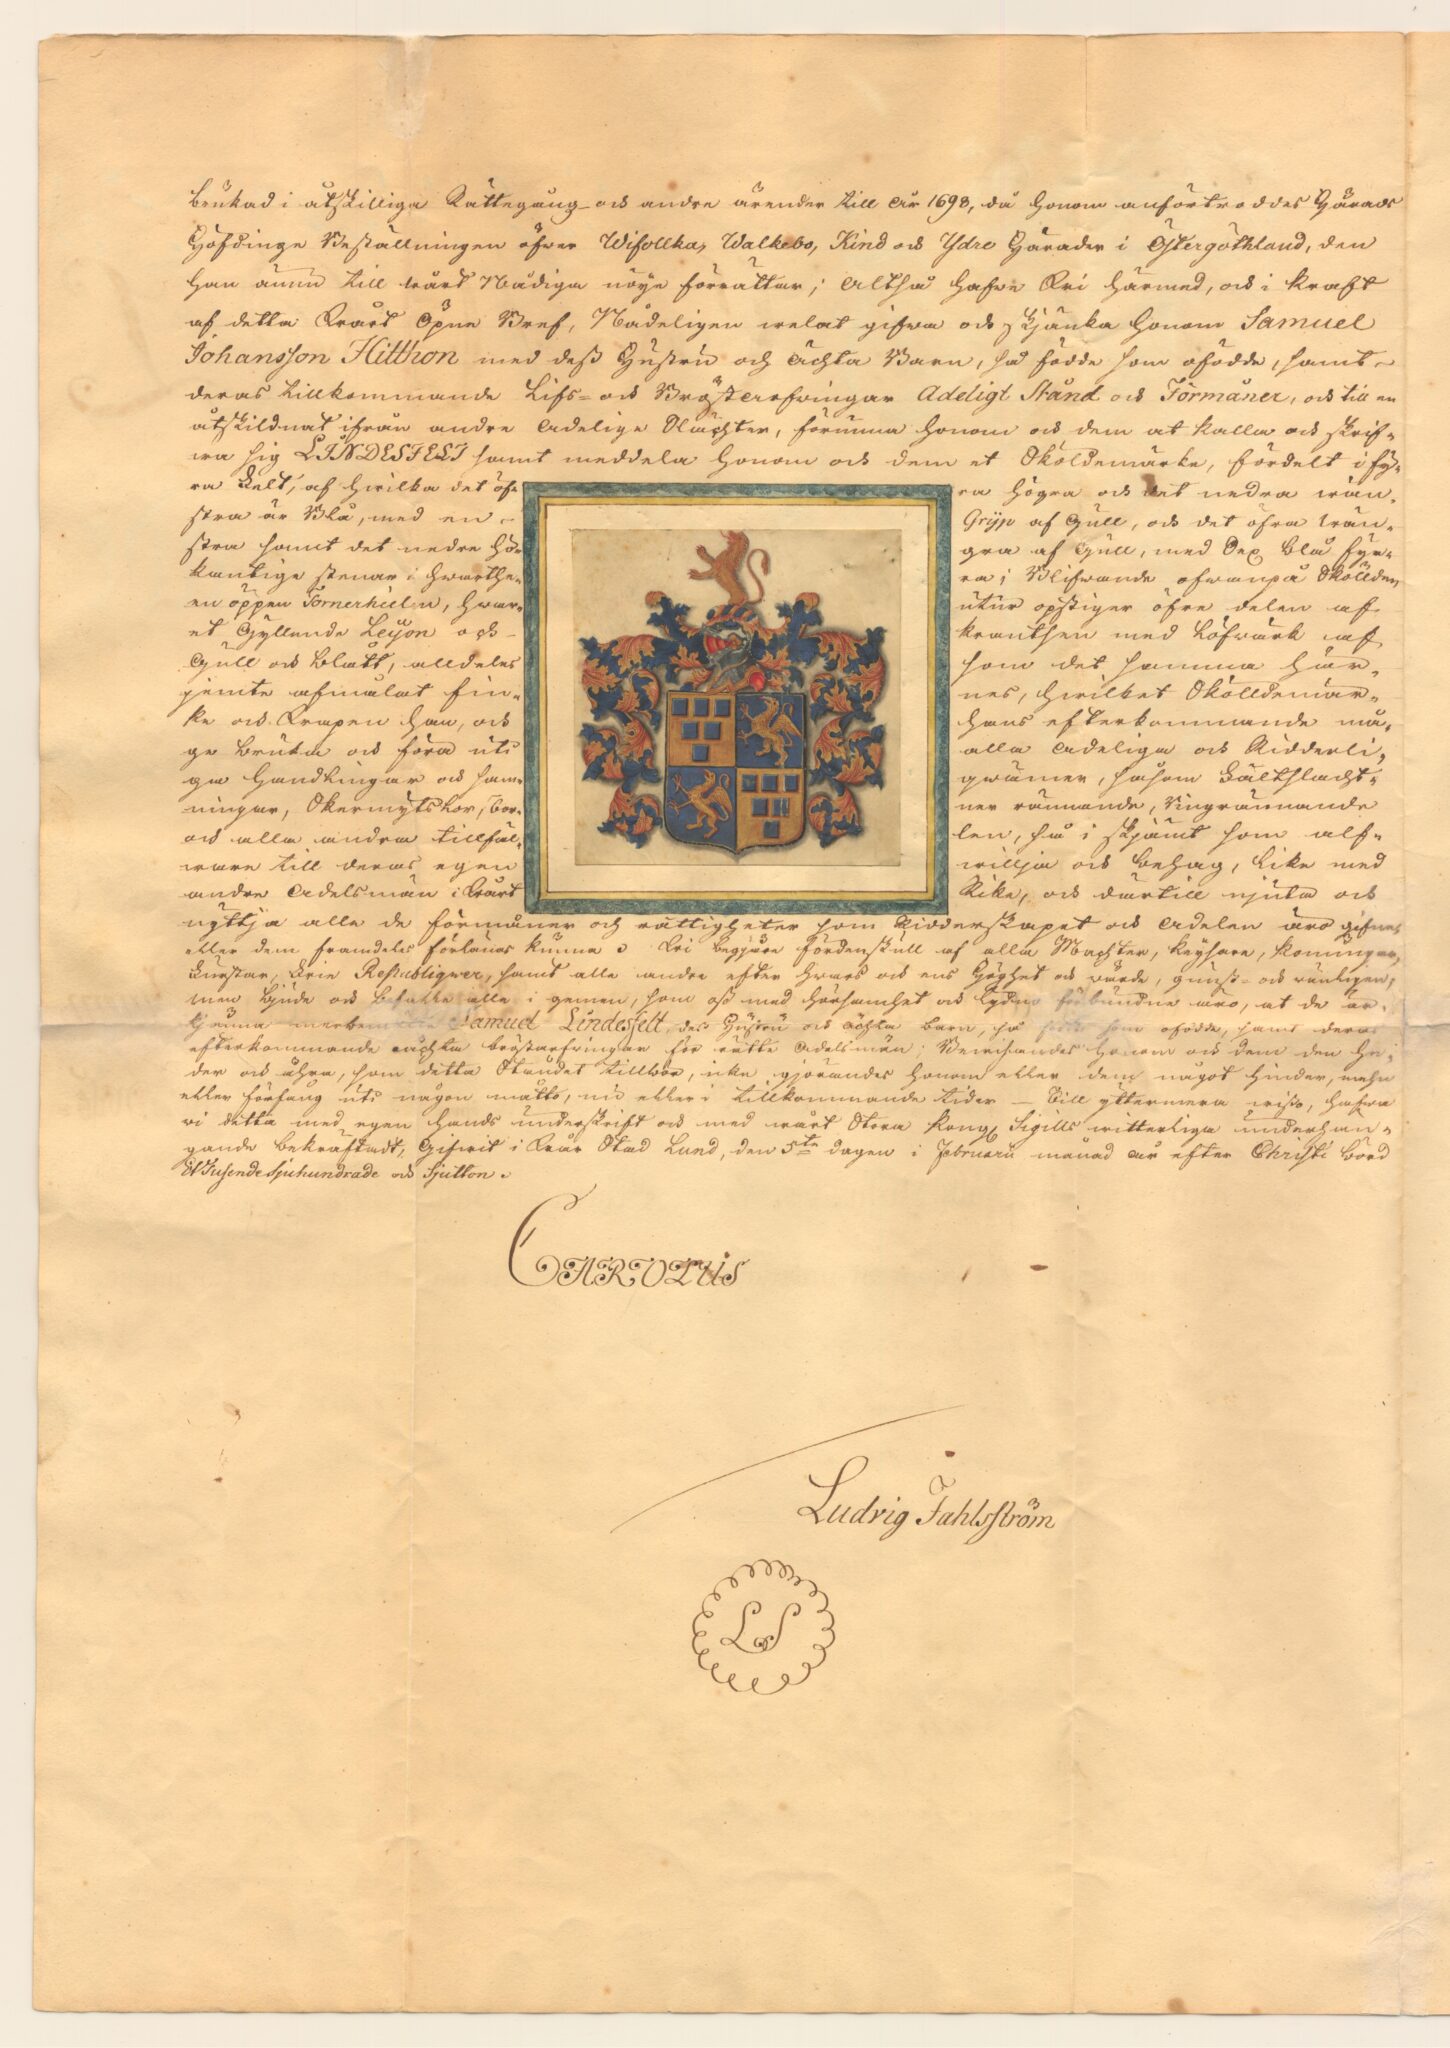 brükad i åtskilliga Rättegång och andre ärender till år 1698, då honom anförtroddes Härads
Höfdinge Beställningen öfwer Wifollka, Walkebo, Kind och Ydre Härader i Östergöthland, den
han ännü till wårt Nådiga nöye förrättar; Altså hafwe Wi härmed, och i kraft
af detta Wårt Öpne Bref, Nådeligen welat gifwa och skjänka honom Samuel
Johansson Hitthon med deß Hüstrü och ächta Barn, så födde som ofödde, samt
deras tillkommande Lifs= och Bröstarfwingar Adeligt Stånd och Förmåner, och till en
åtskildnat ifrån andre Adelige Slächter, förünna honom och dem at kalla och skrif=
wa sig LINDESFELT samt meddela honom och dem et Sköldemärke, fördelt i fÿ=
ra Felt, af hwilka det öf= ra högra och det nedra wän=
stra är Blå, med en Gripp af Güll, och det öfra wän=
stra samt det nedre hö= gra af Güll, med Sex blå fÿr=
kantige stenar i hwarthe= ra; Blifwande ofwanpå Skölden
en öppen Tornerhielm, hwar= utur opstiger öfre delen af
et Gyllende Leijon och kranthsen med Löfwärk af
Güll och Blått, alldeles som det samma här
jemte afmålat fin= nes, hwilket Sköldemär=
ke och Wapen han, och hans efterkommande må=
ge brüka och föra üti alla Adeliga och Ridderli=
ga Handlingar och sam= qwämer, såsom Fältslacht=
ningar, Skermytslor, bor= ner rännande, Ringrännande
och alla andra tillfäl= len, så i skjämt som alf=
ware till deras egen willja och behag, like med
andre Adelsmän i Wårt Rike, och därtill njuta och
nyttja alle de förmåner och rättigheter som Ridderskapet och Adelen äro gifne,
eller dem framdeles förlänas kunna. Wi begjäre fördenskull af alla Machter, Keysare, Konungar,
Furstar, Frie Republiquer, samt alle andre efter hwars och ens Höghet och wärde, günst= och wänligen,
men bjude och befalle alle i gemen, som oß med hörsamhet och lydno förbundne äro, at de är=
kjänna merbemälte Samuel Lindesfelt, deß Hüstrü och ächta barn, så födde som ofödde, samt deras
efterkommande ächta bröstarfwingar för rätte Adelsmän; Bewisandes honom och dem den he=
der och ähra, som detta Ståndet tillhör, icke gjörandes honom eller dem något hinder, mehn
eller förfång üti någon måtto, nü eller i tillkommande tider — Till yttermera wißo, hafwa
wi detta med egen hands ünderskrift och med wårt Stora Kongl Sigills witterliga ünderhän=
gande bekräftadt, Gifwit i Wår Stad Lund, den 5te dagen i Februarii månad år efter Christi börd
Et Tusende sjuhundrade och Sjutton.
CAROLUS
Ludvig Fahlsström
LS